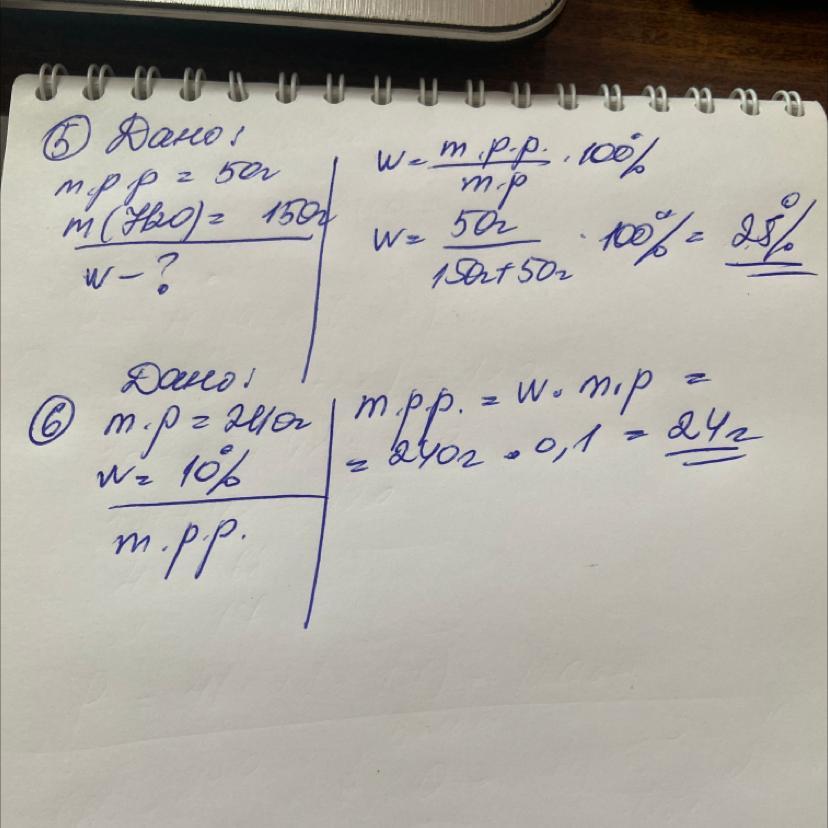 5 Дано:
m.p.p = 50г
m(H2O) = 150г
w - ?
w = m.p.p. / m.p · 100%
w = 50г / 150г + 50г · 100% = 25%
6 Дано:
m.p = 240г
w = 10%
m.p.p.
m.p.p. = w · m.p =
= 240г · 0,1 = 24г